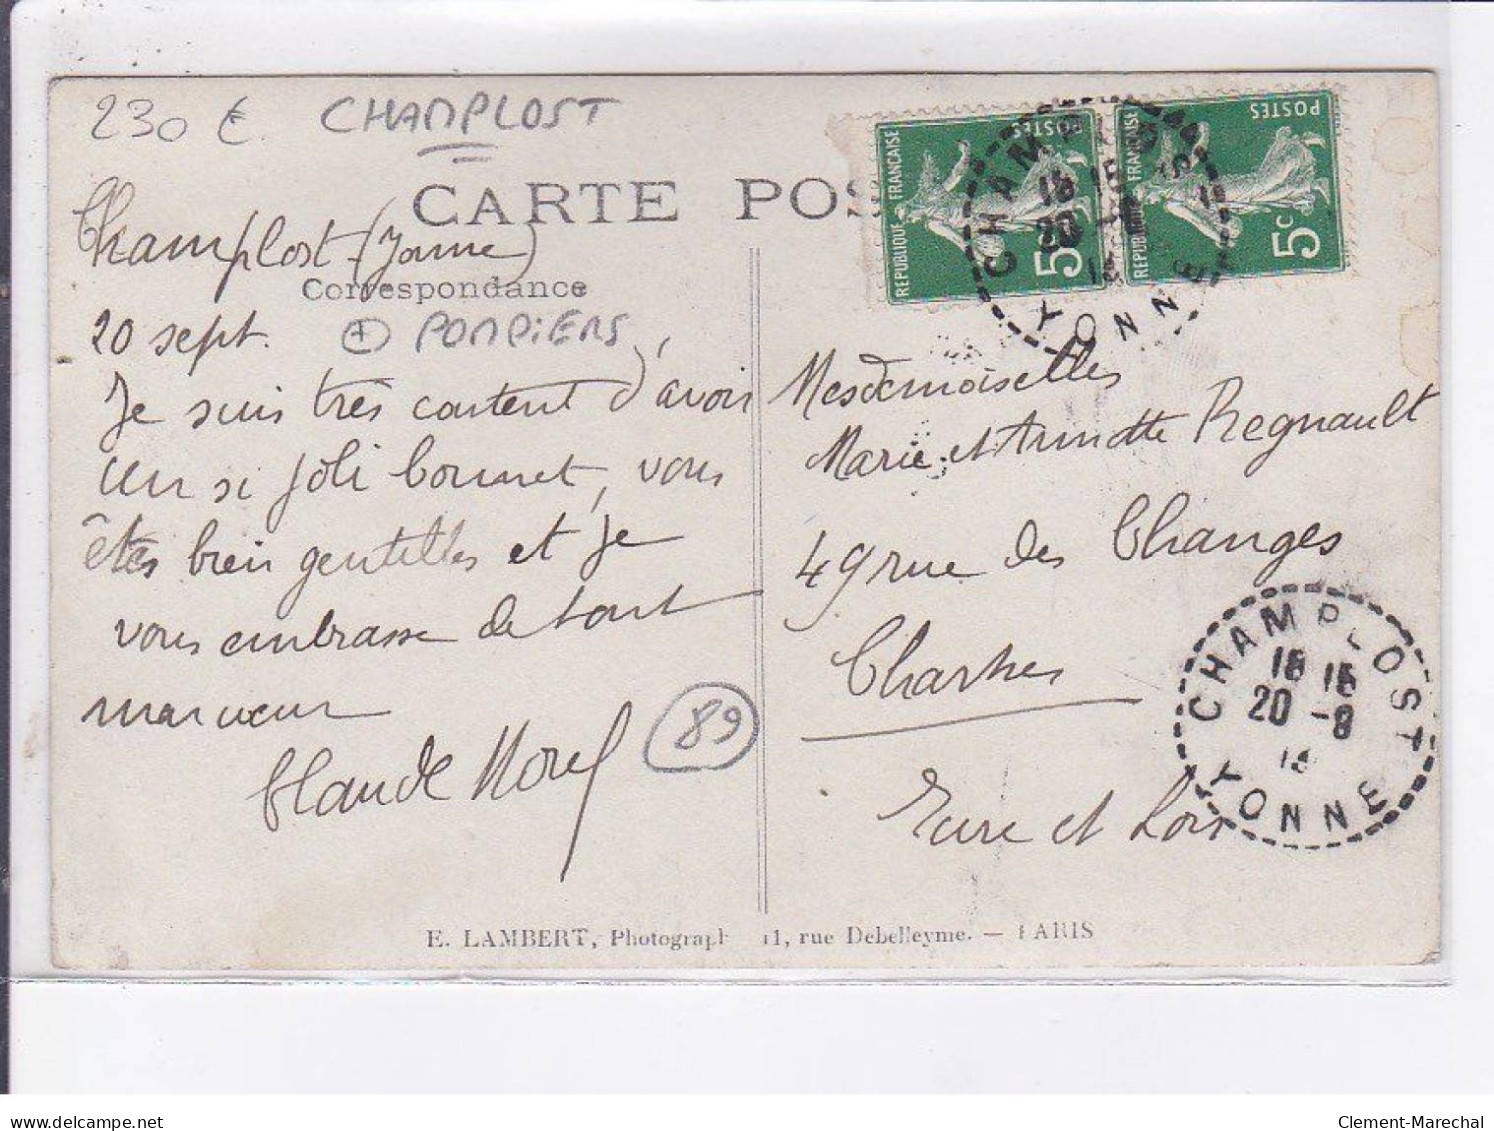 230 € CHAMPLOST
CARTE POS
Champlost (Yonne)
Correspondance
20 sept. + POMPIERS
Je suis très content d'avoir
un si joli bonnet, vous
êtes bien gentilles et je
vous embrasse de tout
mon cœur
Claude Morel
89
REPUBLIQUE FRANÇAISE
POSTES
5c
REPUBLIQUE FRANÇAISE
POSTES
5c
CHAMPLOST
YONNE
Mesdemoiselles
Marie et Annette Regnault
49 rue des Changes
Chartres
Eure et Loir
CHAMPLOST
20 -9
YONNE
E. LAMBERT, Photograph 11, rue Debelleyme. — PARIS
www.delcampe.net
Clement-Marechal